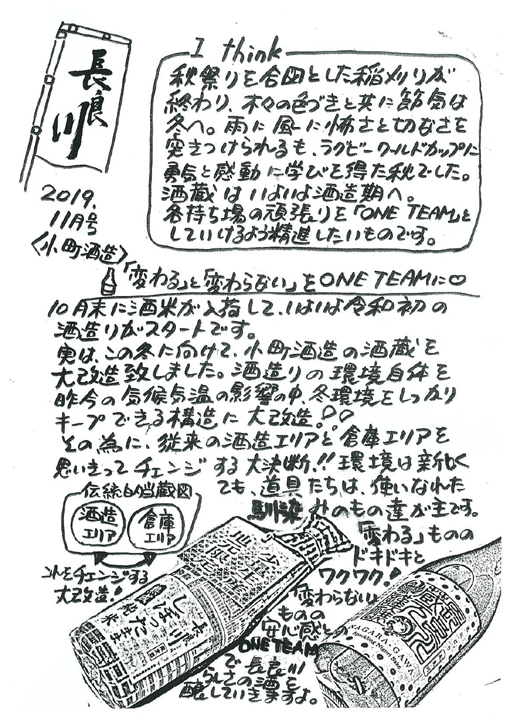 長良川
2019.
11月号
〈小町酒造〉
I think
秋祭りを合図とした稲刈りが
終わり、木々の色づきと共に節気は
冬へ。雨に風に怖さと切なさを
突きつけられるも、ラグビーワールドカップに
勇気と感動に学びを得た秋でした。
酒蔵はいよいよ酒造期へ。
各持ち場の頑張りを「ONE TEAM」と
していけるよう精進したいものです。
「変わる」と「変わらない」をONE TEAMに♡
10月末に酒米が入荷して、いよいよ令和初の
酒造りがスタートです。
実は、この冬に向けて、小町酒造の酒蔵を
大改造致しました。酒造りの環境自体を
昨今の気候気温の影響の中、冬環境をしっかり
キープできる構造に大改造!!
その為に、従来の酒造エリアと倉庫エリアを
思いきってチェンジする大決断!!環境は新しく
ても、道具たちは、使いなれた
馴染みのもの達が主です。
伝統的当蔵図
酒造
エリア
倉庫
エリア
コレをチェンジする
大改造!
「変わる」ものの
ドキドキと
ワクワク!
「変わらない」
ものの
安心感との
ONE TEAM
で長良川
らしさの酒を
醸していきますよ。
長良川
しぼりたて
純米
NAGARAGAWA